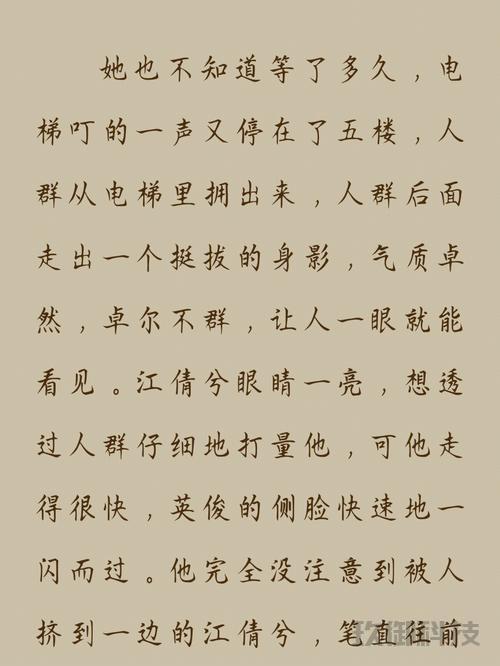 她也不知道等了多久，电
梯叮的一声又停在了五楼，人
群从电梯里拥出来，人群后面
走出一个挺拔的身影，气质卓
然，卓尔不群，让人一眼就能
看见。江倩兮眼睛一亮，想透
过人群仔细地打量他，可他走
得很快，英俊的侧脸快速地一
闪而过。他完全没注意到被人
挤到一边的江倩兮，笔直往前